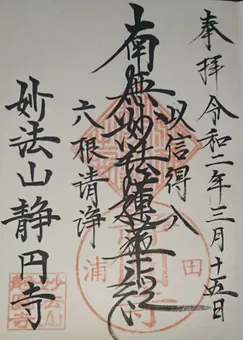 奉拝 令和二年三月十五日
以信得入
南無妙法蓮華経
六根清浄
妙法山静円寺
田
浦